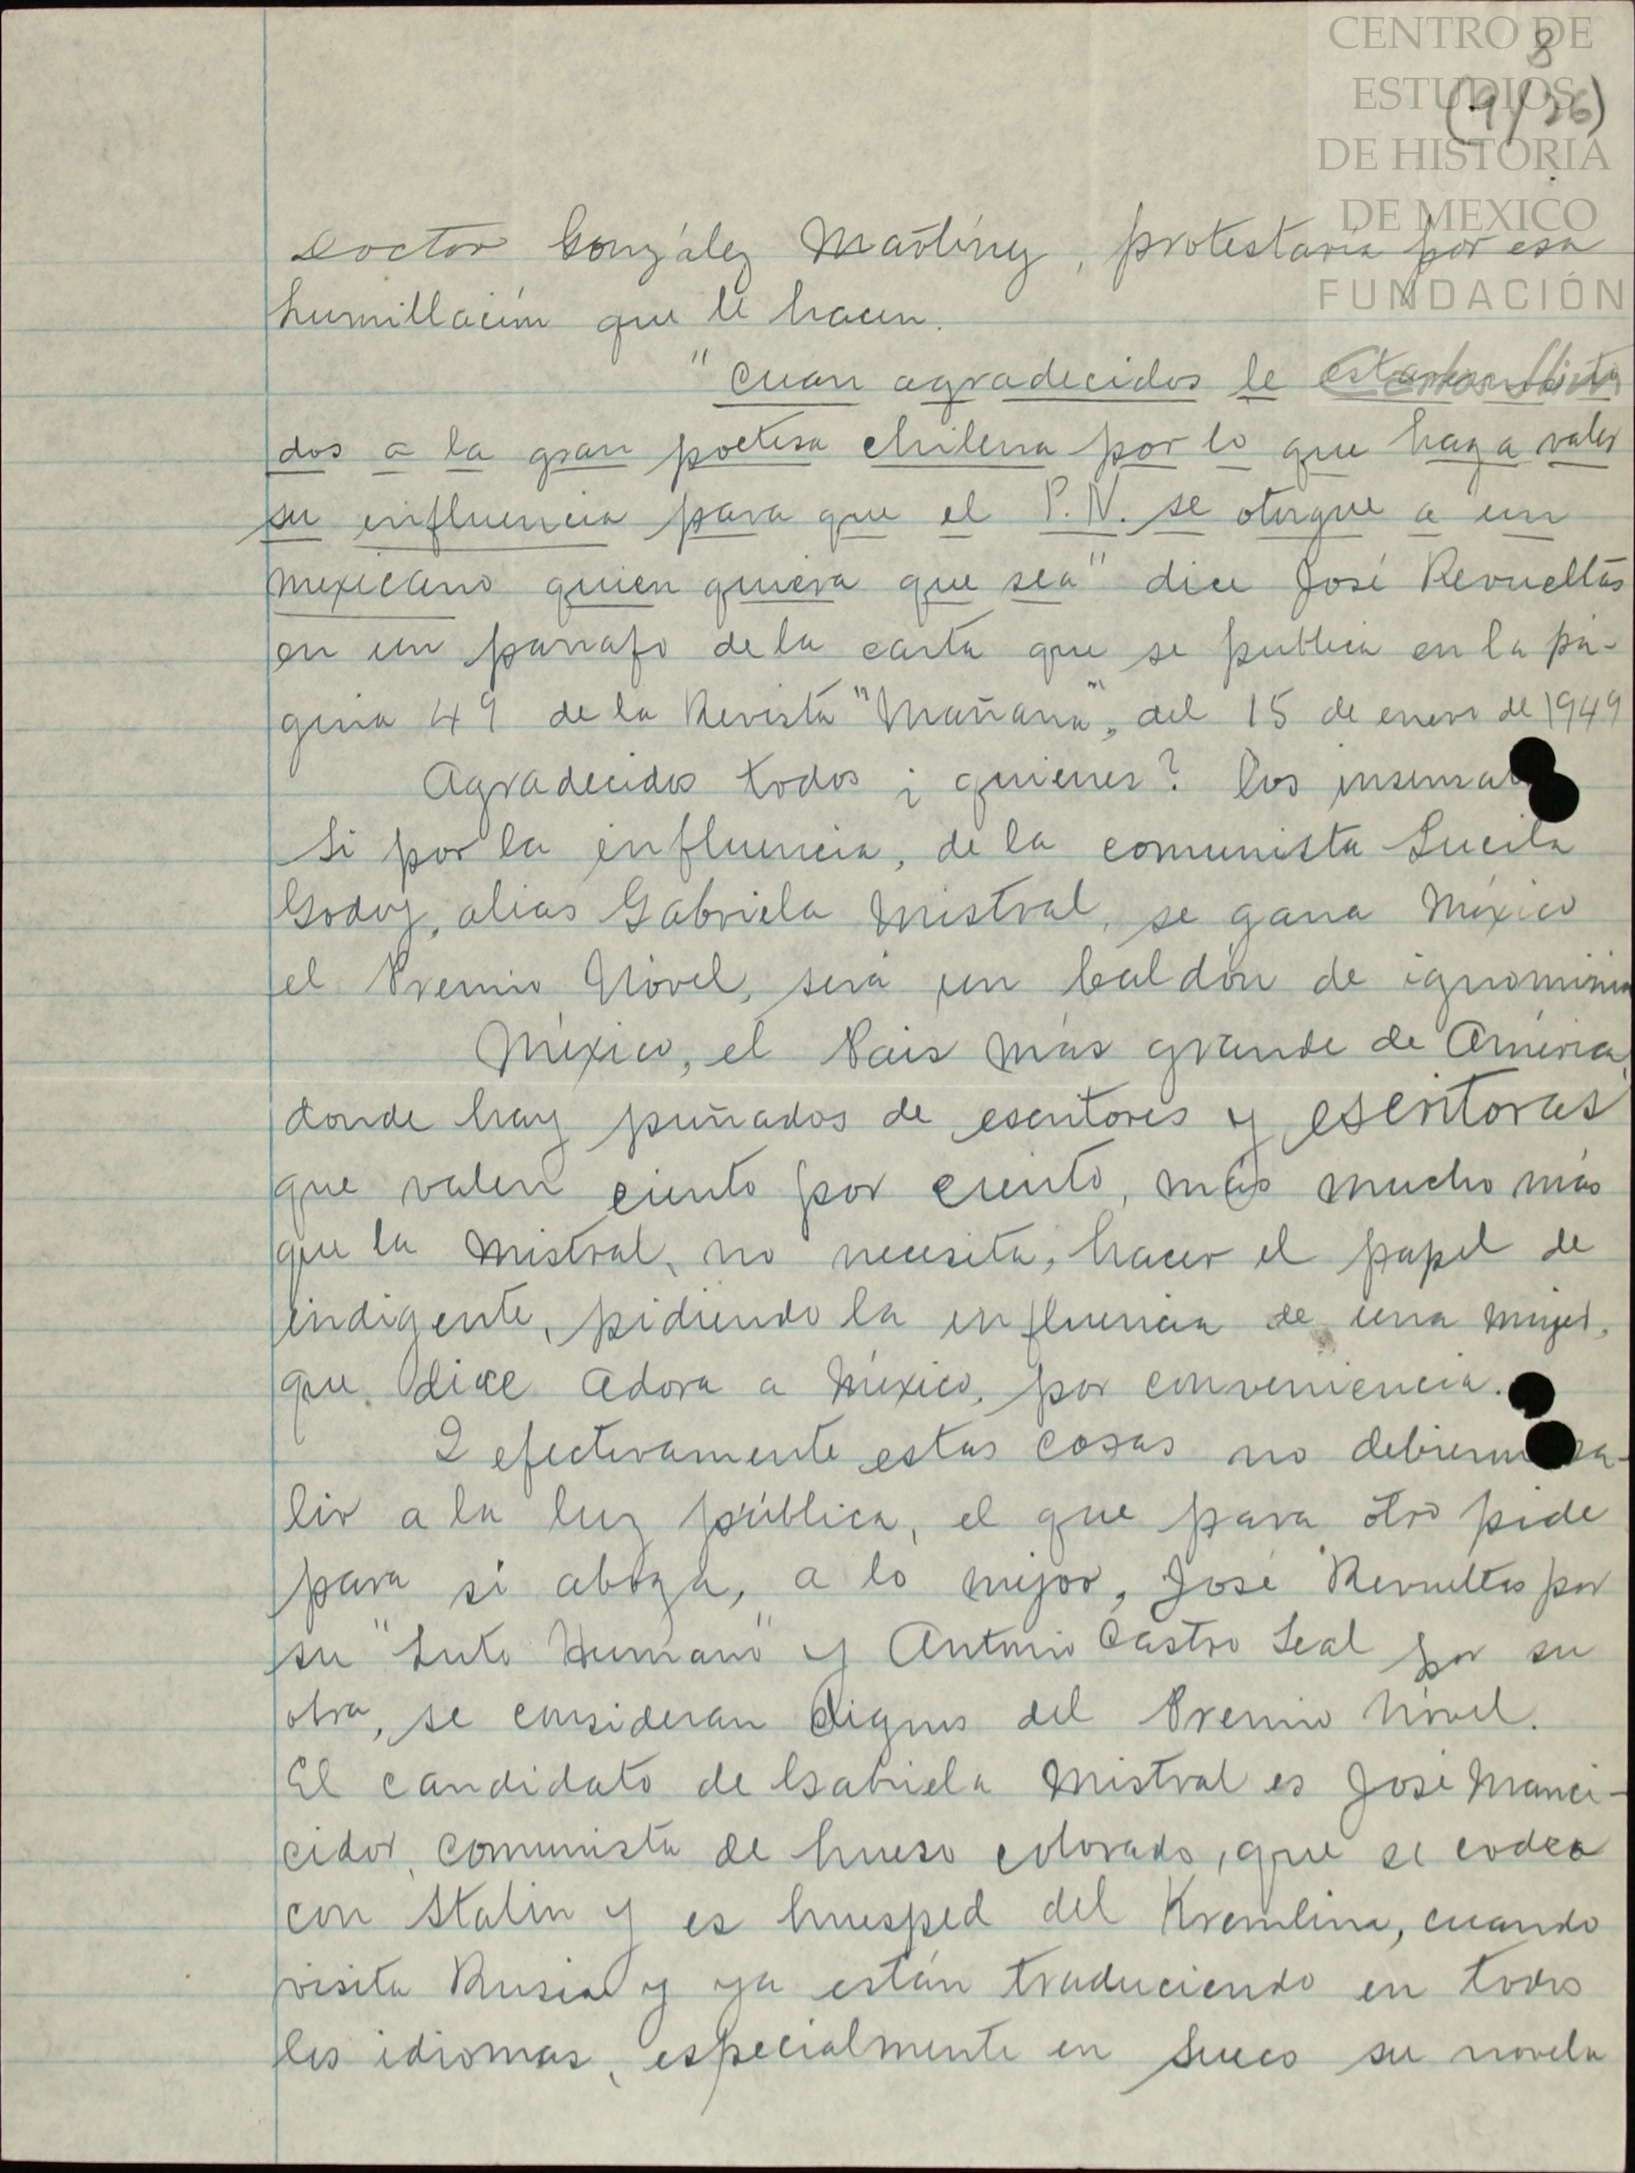 CENTRO DE
ESTUDIOS
DE HISTORIA
DE MEXICO
FUNDACIÓN
8
(9/26)
Doctor González Martínez, protestaría por esa
humillación que le hacen.
"Cuan agradecidos le
dos a la gran poetisa chilena por lo que haga valer
su influencia para que el P.N. se otorgue a un
mexicano quien quiera que sea" dice José Revueltas
en un parrafo de la carta que se publica en la pá-
gina 49 de la Revista "Mañana", del 15 de enero de 1949
Agradecidos todos ¿ quienes? los insensat
Si por la influencia, de la comunista Lucila
Godoy, alias Gabriela Mistral, se gana México
el Premio Nóvel, será un baldón de ignominia
México, el Pais más grande de América,
donde hay puñados de escritores y escritoras
que valen ciento por ciento, más mucho más
que la Mistral, no necesita, hacer el papel de
indigente, pidiendo la influencia de una mujer,
que dice adora a México, por conveniencia.
I efectivamente estas cosas no debieran sa-
lir a la luz pública, el que para otro pide
para si aboga, a lo mejor, José Revueltas por
su "Luto Humano" y Antonio Castro Leal por su
obra, se consideran dignos del Premio Nóvel.
El candidato de Gabriela Mistral es José Manci-
cidor, comunista de hueso colorado, que se codea
con Stalin y es huesped del Kremlina, cuando
visita Rusia y ya están traduciendo en todos
los idiomas, especialmente en Sueco su novela